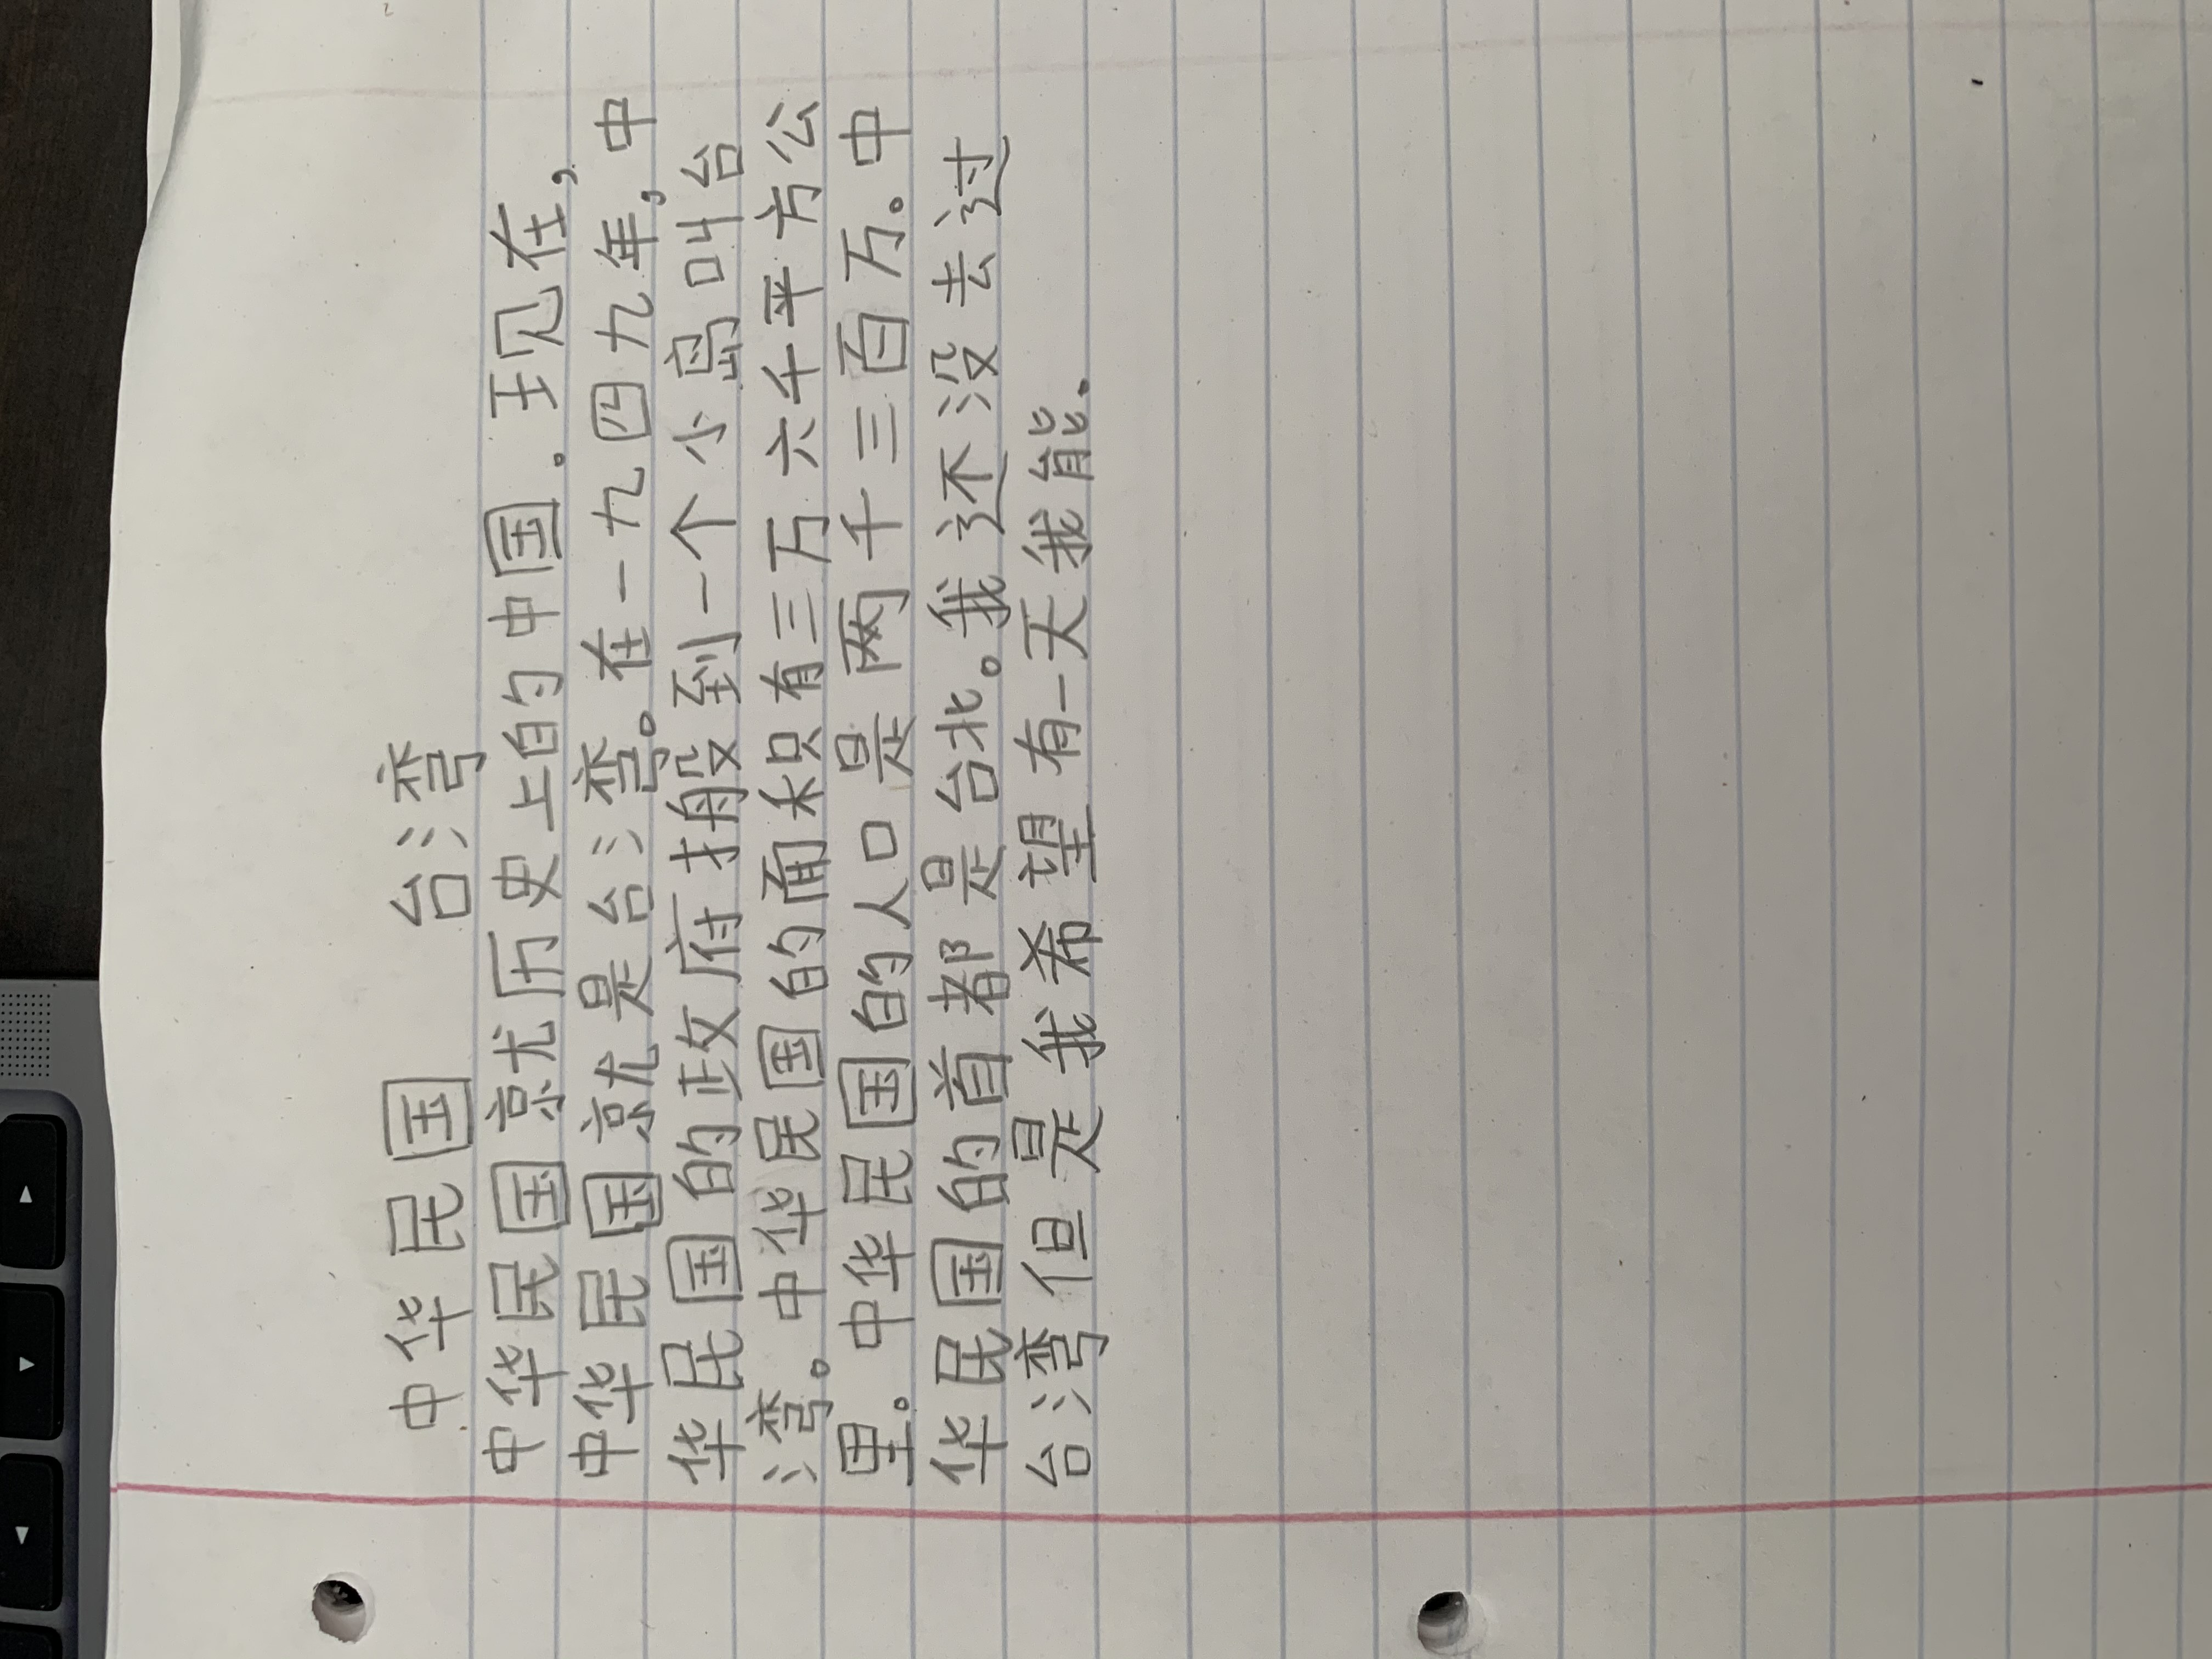 中华民国 台湾
中华民国就历史上的中国。现在,
中华民国就是台湾。在一九四九年,中
华民国的政府搬到一个小岛叫台
湾。中华民国的面积有三万六千平方公
里。中华民国的人口是两千三百万。中
华民国的首都是台北。我还没去过
台湾但是我希望有一天我能。